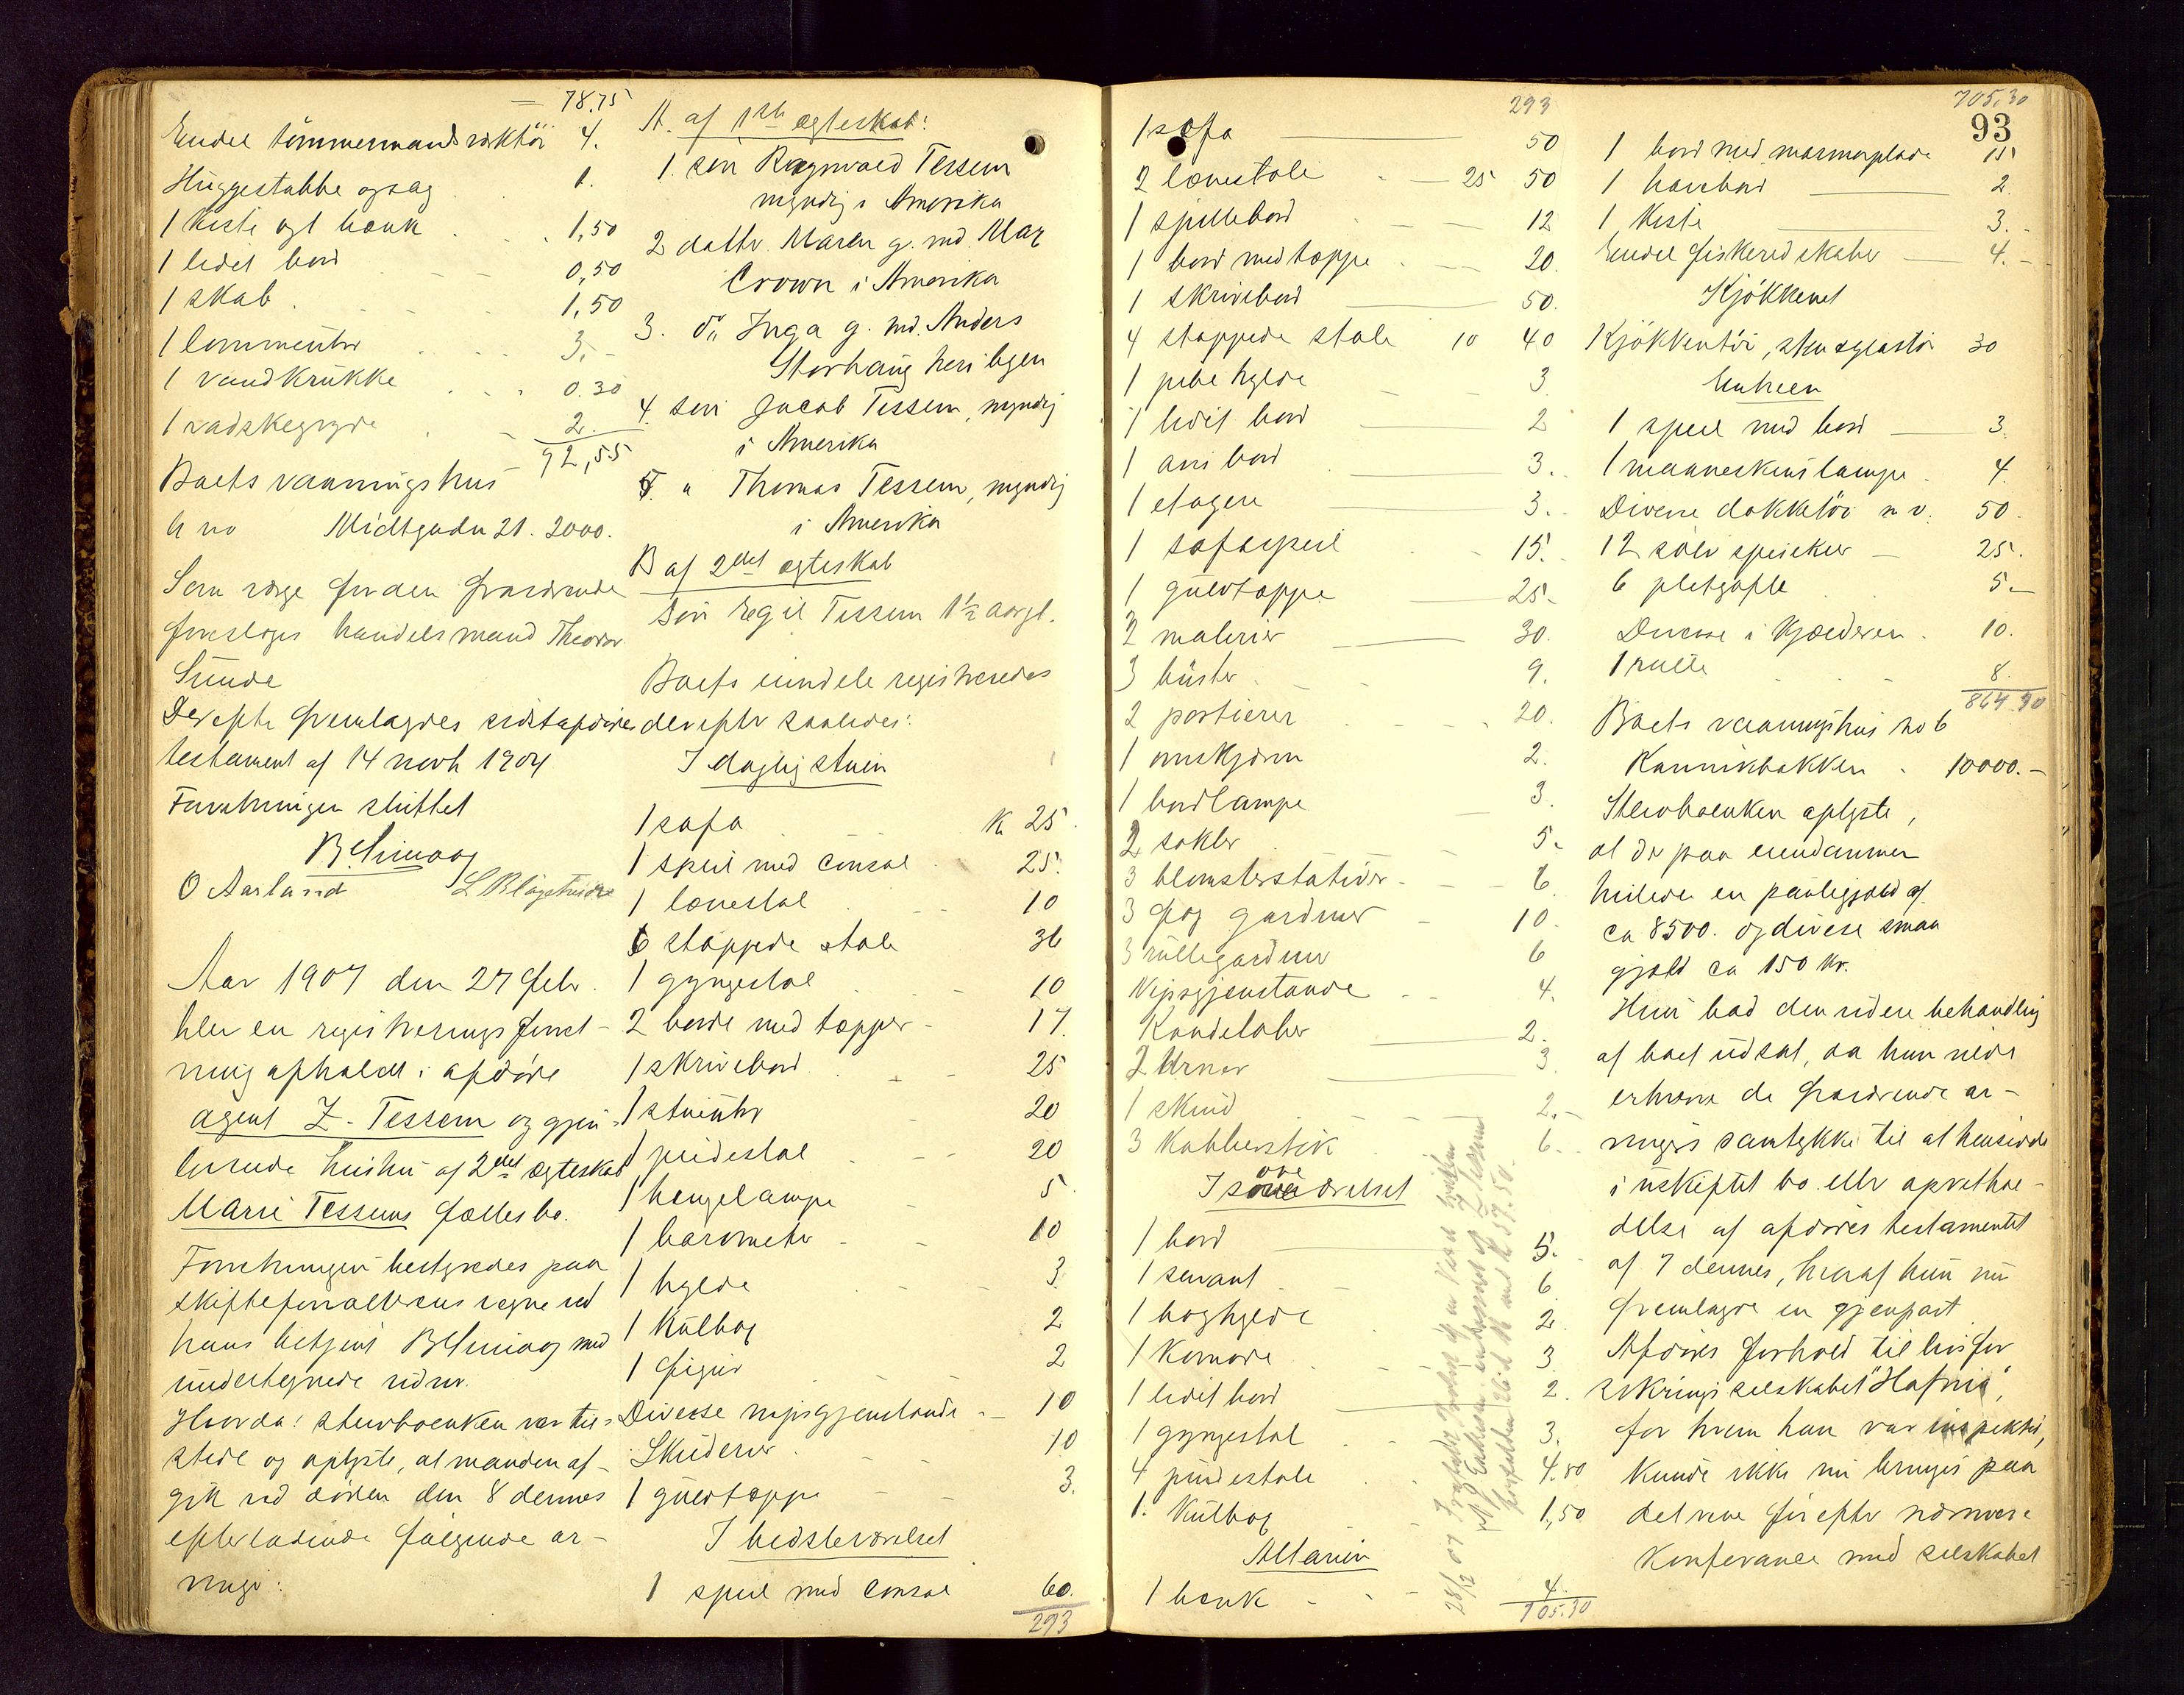 78.75
Endel tömmermandsverktöi 4.
Huggestabbe og sag 1.
1 kiste og 1 bænk 1,50
1 lidet bord 0,50
1 skab 1,50
1 lommeuhr 3,-
1 vandkrukke 0.30
1 vadskegryde 2.
92,55
Boets vaaningshus
Midtgaden 21. 2000.
Som værge for den fraværende
foresloges handelsmand Theodor
Sunde
Derefter fremlagdes sidstafdødes
testament af 14 novb 1904
Forretningen sluttet
O Aarland
Aar 1907 den 27 febr.
blev en registreringsforret-
ning afholdt i afdöde
agent Z. Tessem og gjen-
levende hustru af 2det ægteskab
Marie Tessems fællesbo.
Forretningen bestyredes paa
skifteforvalterens vegne ved
hans betjent med
undertegnede vidner.
Hvorda: Sterboenken var tils-
stede og oplyste, at manden af-
gik ved døden den 8 dennes
efterladende følgende ar-
vinger:
A. af 1ste ægteskab:
1. sön Ragnvald Tessem
myndig i Amerika
2 datter Maren g. med Max
Crown i Amerika
3. do Inga g. med. Anders
Storhaug her i byen
4. sön Jacob Tessem, myndig
i Amerika
5. " Thomas Tessem, myndig
i Amerika
B af 2det ægteskab
Sön Egil Tessem 1½ aar gl.
Boets eiendele registreredes
derefter saaledes:
I dagligstuen
1 sofa K 25.
1 speil med consol 25.
1 lænestol 10
6 stoppede stole 36
1 gyngestol 10
2 borde med tæpper 17.
1 skrivebord 25
1 stueuhr 20
1 pidestal 20
1 hengelampe 5
1 barometer 10
1 hylde 3.
1 kulbox 2
1 figur 2
Diverse nipsgjenstande 10
Skilderier 10
1 gulvtæppe 3.
I bedsteværelset
1 speil med consol 60.
293
293
1 sofa 50
2 lænestole 25 50
1 spillebord 12
1 bord med tæppe 20.
1 skrivebord 50.
4 stoppede stole 10 40
1 pibehylde 3
1 lidet bord 2
1 avisbord 3.
1 etagere 3.
1 sofaspeil 15.
1 gulvtæppe 25.
2 malerier 30.
3 büster 9.
2 portierer 20.
1 ovnskjærm 2.
1 bordlampe 3.
2 sokler 5.
3 blomsterstativer 6
3 fag gardiner 10.
3 rullegardiner 6
Nipsgjenstande 4.
Kandelaber 2.
2 Urner 3
1 skind 2.-
3 Kobberstik 6.
I soveværelset
1 bord 5.
1 servant 6
1 boghylde 2
1 Komode 3
1 lidet bord 2.
1 gyngestol 3.
4 pindestole 4.80
1. kulbox 1,50
Altanen
1 bænk 4.
705.30
705,30
93
1 bord med marmorplade 15
1 havebord 2.
1 Kiste 3.-
Endel fiskeredskaber 4.-
Kjökkenet
Kjökkentöi, sten & glastöi 30
Entreen
1 speil med bord 3.
1 maaneskinslampe 4.
Diverse dækketöi m. v. 50.
12 sölv spiseskeer 25.
6 pletgafle 5.-
Diverse i Kjælderen 10.
1 rulle 8.
864.30
Boets vaaningshus no 6
Kannikbakken 10000.-
Sterboenken oplyste,
at der paa eiendommen
heftede en pantegjæld af
ca 8500. og diverse smaa
gjæld ca 150 kr.
Hun bad den videre behandling
af boet udsat, da hun vilde
erhverve de fraværende ar-
vingers samtykke til at hensidde
i uskiftet bo eller opretthol-
delse af afdødes testamentet
af 7 dennes, hvoraf hun nu
fremlagde en gjenpart
Afdödes forhold til livsfor-
sikringsselskabet "Hafnia",
for hvem han var inspektör,
kunde ikke nu bringes paa
det rene för efter nærmere
Konferance med selskabet